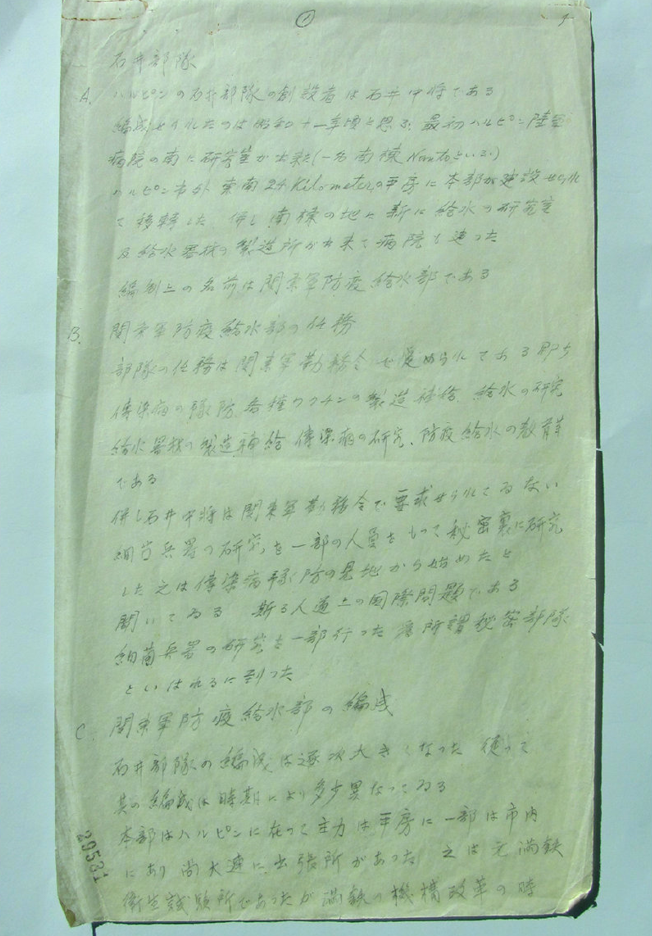 ①
石井部隊
A. ハルピンの石井部隊の創設者は石井中将である
編成せられたのは昭和十一年頃と思ふ 最初ハルピン陸軍
病院の南に研究室が出来た(一名南棟 といふ)
ハルピン市外東南24Kilometerの平房に本部が建設せられ
て移轉した 併し南棟の地に新に給水の研究室
及給水器材の製造所が出来て病院も造った
編制上の名前は関東軍防疫給水部である
B. 関東軍防疫給水部の任務
部隊の任務は関東軍勤務令で定められてある即ち
傳染病の豫防、各種ワクチンの製造補給 給水の研究
給水器材の製造補給 傳染病の研究、防疫給水の教育等
である
併し石井中将は関東軍勤務令で要求せられてゐない
細菌兵器の研究を一部の人員をもって秘密裏に研究
した 之は傳染病豫防の見地から始めたと
聞いてゐる 斯る人道上の国際問題である
細菌兵器の研究を一部行った為所謂秘密部隊
といはれるに到った
C. 関東軍防疫給水部の編成
石井部隊の編成は逐次大きくなった 従って
其の編成は時期により多少異なってゐる
本部はハルピンに在って主力は平房に一部は市内
にあり 尚大連に出張所があった 之は元満鉄
衛生試験所であったが満鉄の機構改革の時
29531